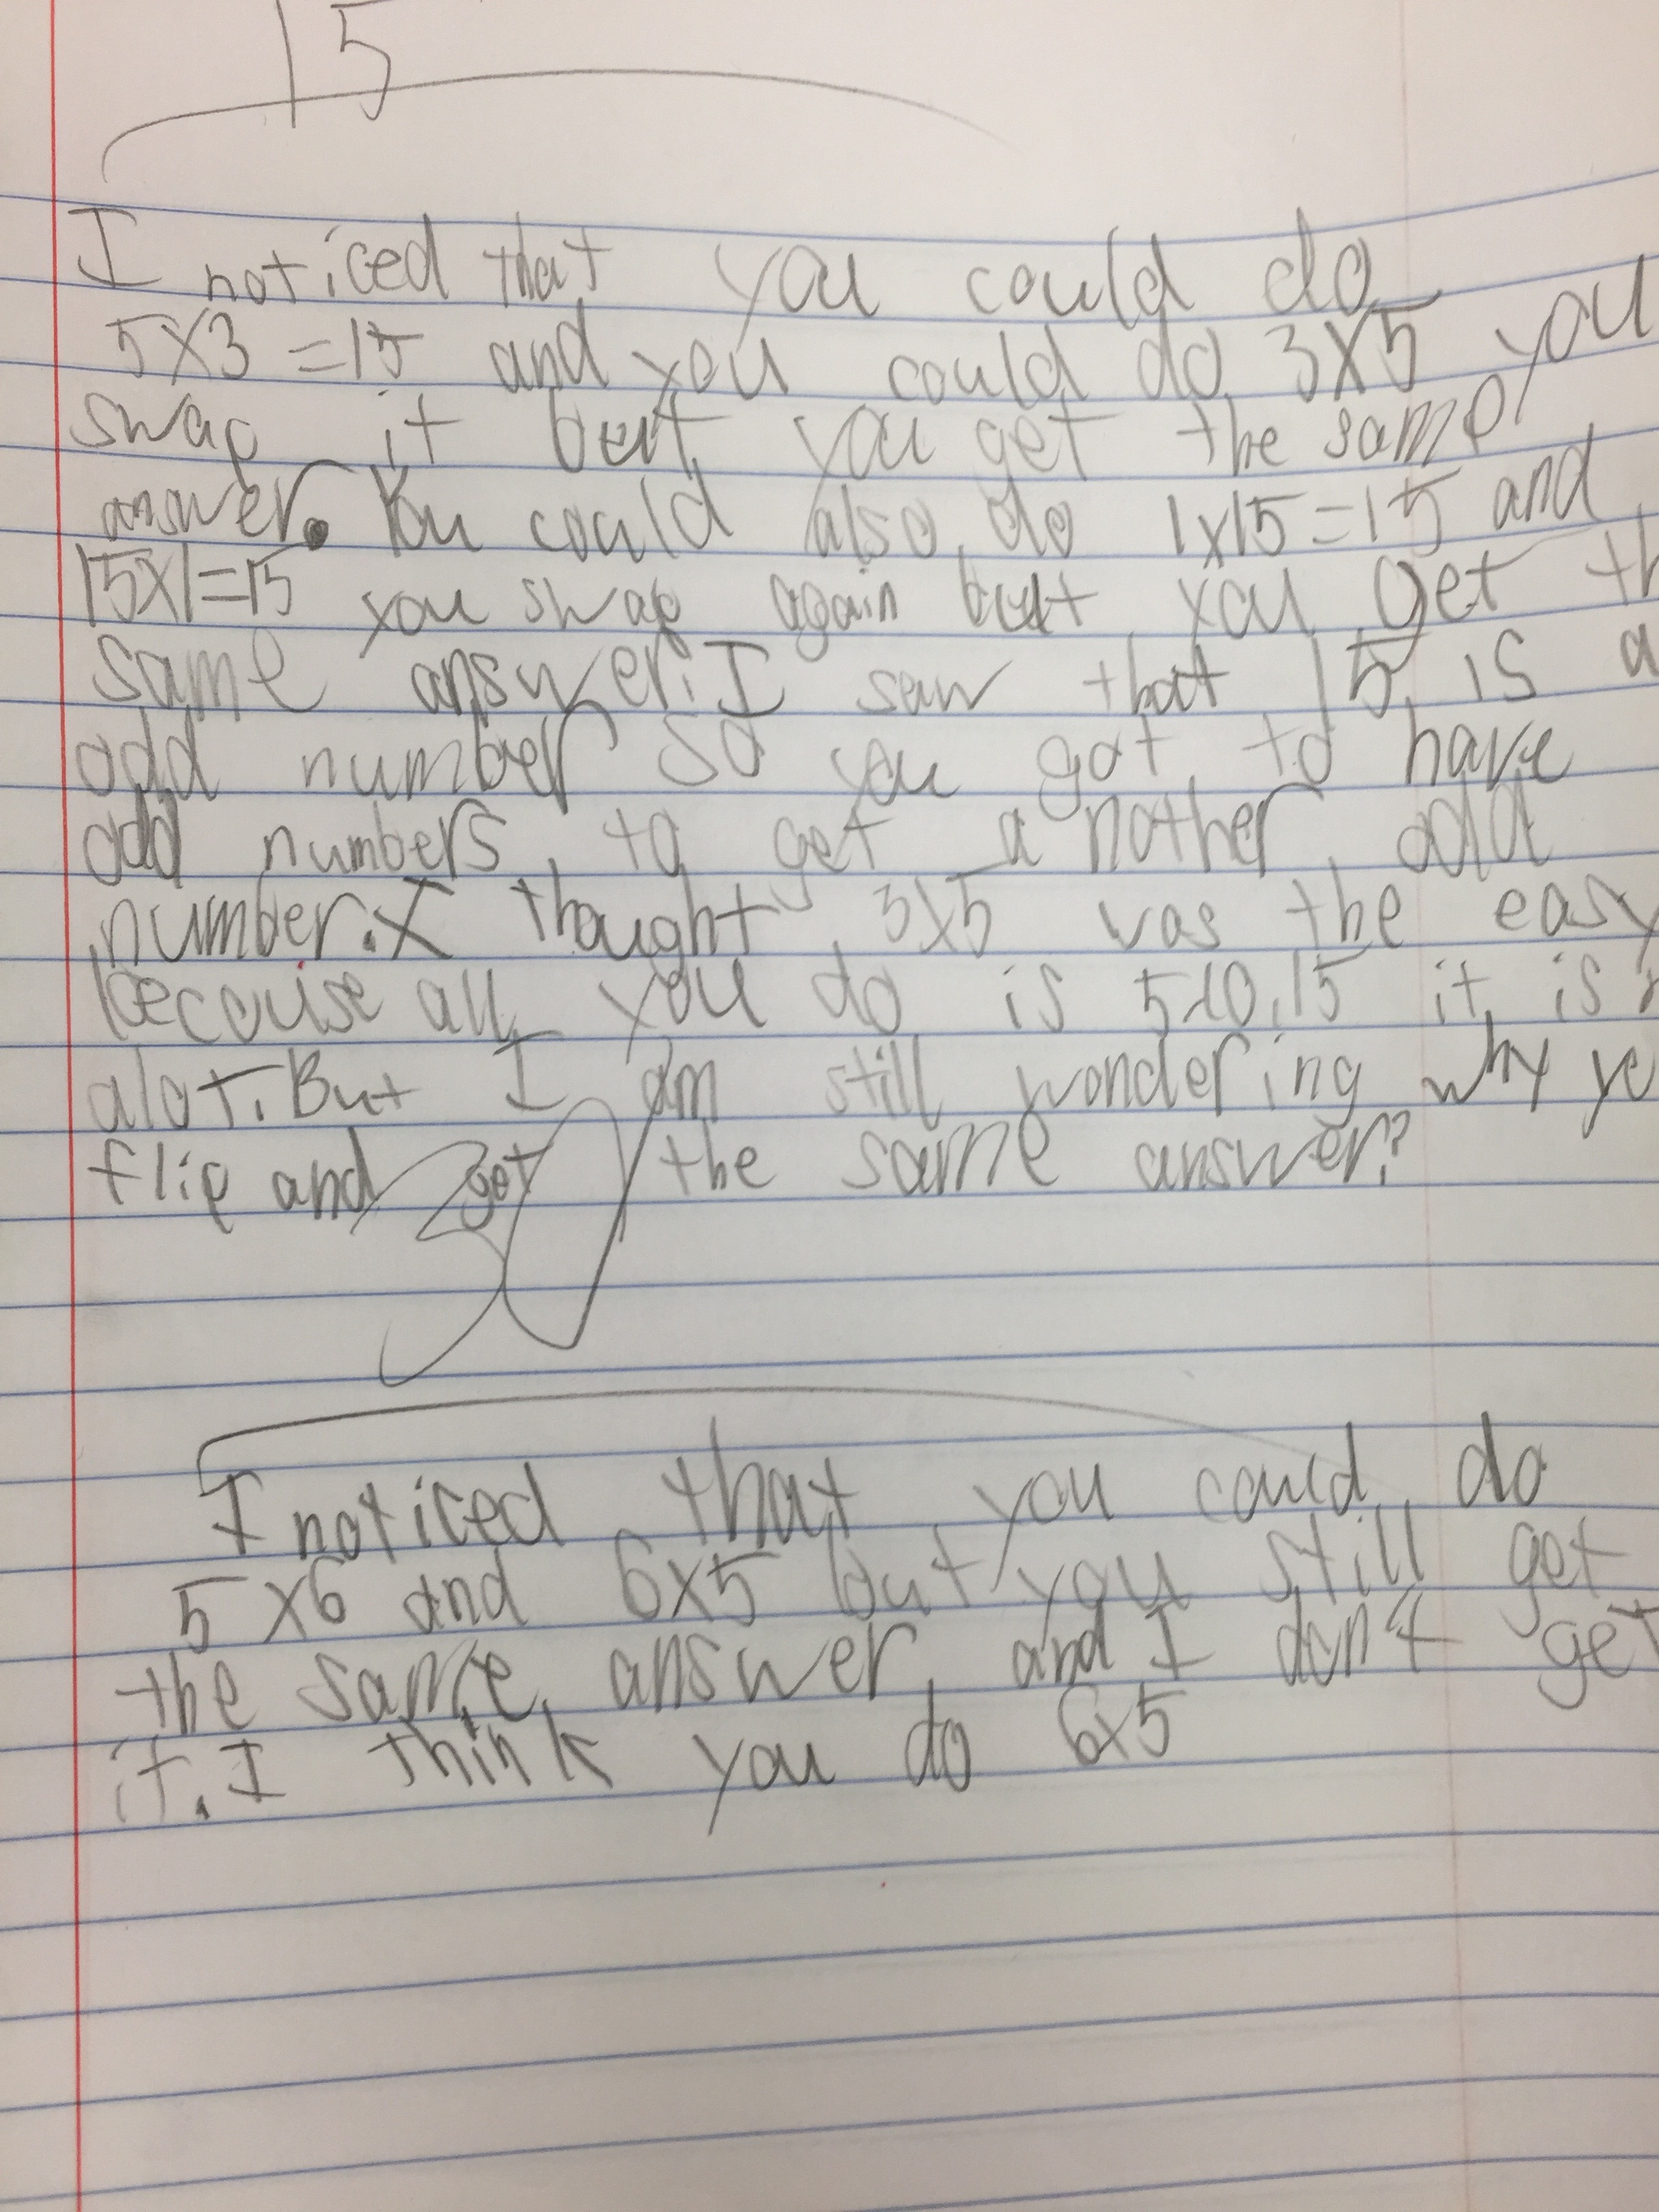 15
I noticed that you could do
5x3=15 and you could do 3x5 you
swap it but you get the same
answer. You could also do 1x15=15 and
15x1=15 you swap again but you get th
same answer. I saw that 15 is a
odd number so you got to have
odd numbers to get a nother odd
number. I thought 3x5 was the easy
becouise all you do is 5,10,15 it is
alot. But I am still wondering why yo
flip and get the same answer?
I noticed that you could do
5x6 and 6x5 but you still get
the same answer and I don't get
it. I think you do 6x5